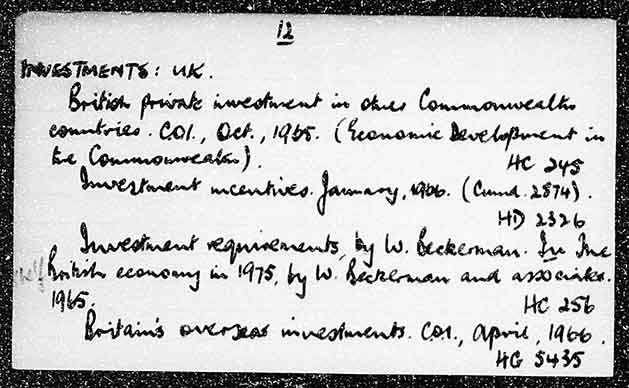 12
INVESTMENTS: UK.
British private investment in other Commonwealth
countries. COI., Oct., 1965. (Economic Development in
the Commonwealth).
HC 245
Investment incentives. January, 1966. (Cmnd. 2874).
HD 2326
Investment requirements, by W. Beckerman. In The
British economy in 1975, by W. Beckerman and associates.
1965.
HC 256
Britain's overseas investments. COI., April, 1966.
HG 5435